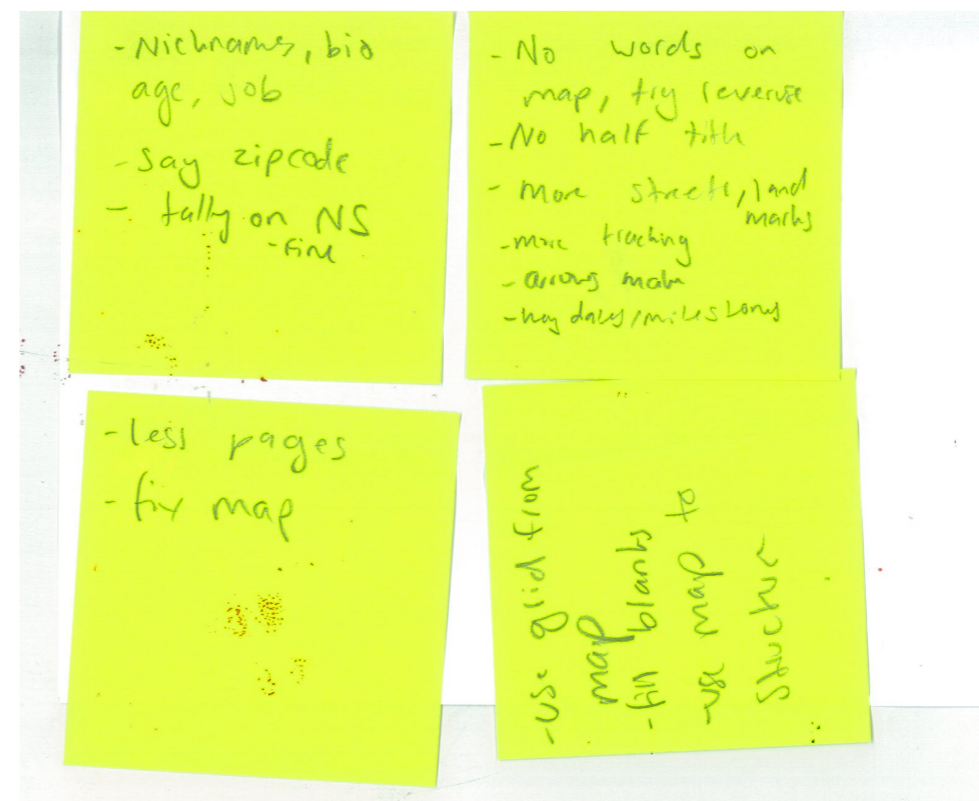 - Nicknames, bio
age, job
- Say zipcode
- tally on NS
- fine
- No words on
map, try reverse
- No half title
- more streets, land
marks
- more tracking
- arrows
- key dates/milestones
- less pages
- fix map
- use grid from
map
- fill blanks
- use map to
structure